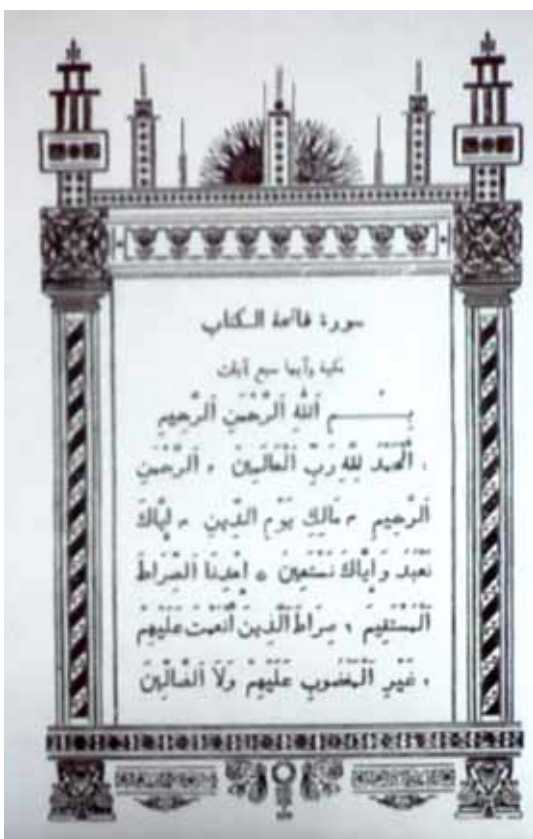 سورة فاتحة الكتاب
مكية وآيها سبع آيات
بِســـمِ اَللهِ اَلرَّحْمٰنِ اَلرَّحِيمِ
اَلْحَمْدُ لِلّٰهِ رَبِّ اَلْعَالَمِينَ ٢ اَلرَّحْمٰنِ
اَلرَّحِيمِ ٣ مَالِكِ يَوْمِ اَلدِّينِ ٤ إِيَّاكَ
نَعْبُدُ وَإِيَّاكَ نَسْتَعِينُ ٥ اِهْدِنَا اَلصِّرَاطَ
اَلْمُسْتَقِيمَ ٦ صِرَاطَ اَلَّذِينَ أَنْعَمْتَ عَلَيْهِمْ
٧ غَيْرِ اَلْمَغْضُوبِ عَلَيْهِمْ وَلَا اَلضَّالِّينَ